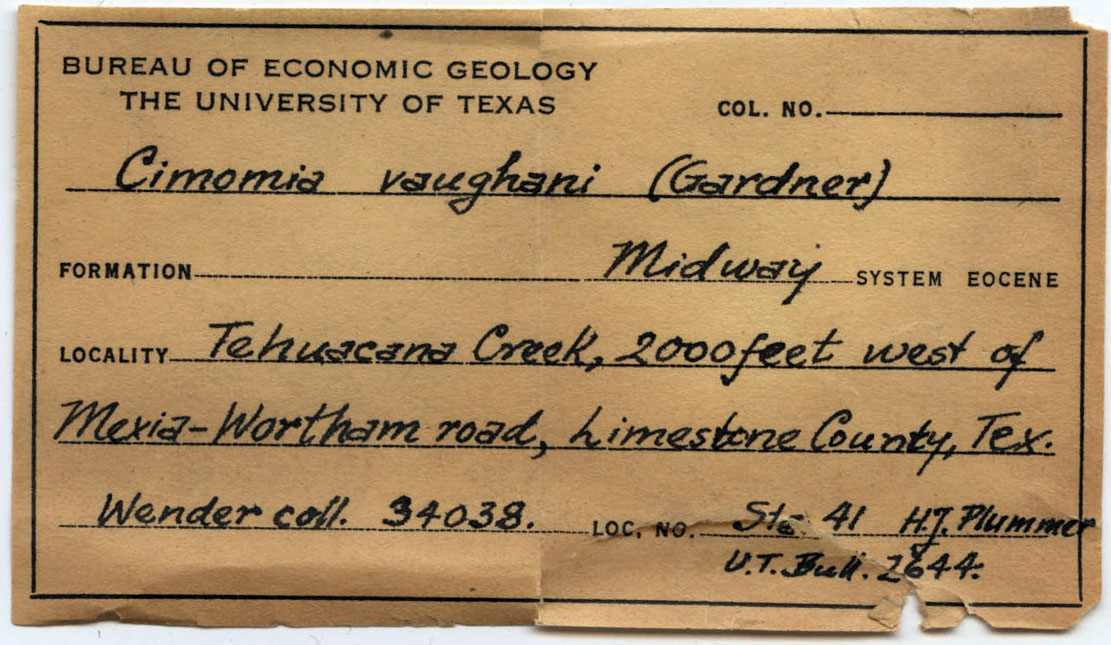 BUREAU OF ECONOMIC GEOLOGY
THE UNIVERSITY OF TEXAS
COL. NO.
Cimomia vaughani (Gardner)
FORMATION Midway SYSTEM EOCENE
LOCALITY Tehuacana Creek, 2000 feet west of
Mexia-Wortham road, Limestone County, Tex.
Wender coll. 34038. LOC. NO. Sta. 41 H.J. Plummer
U.T. Bull. 2644.